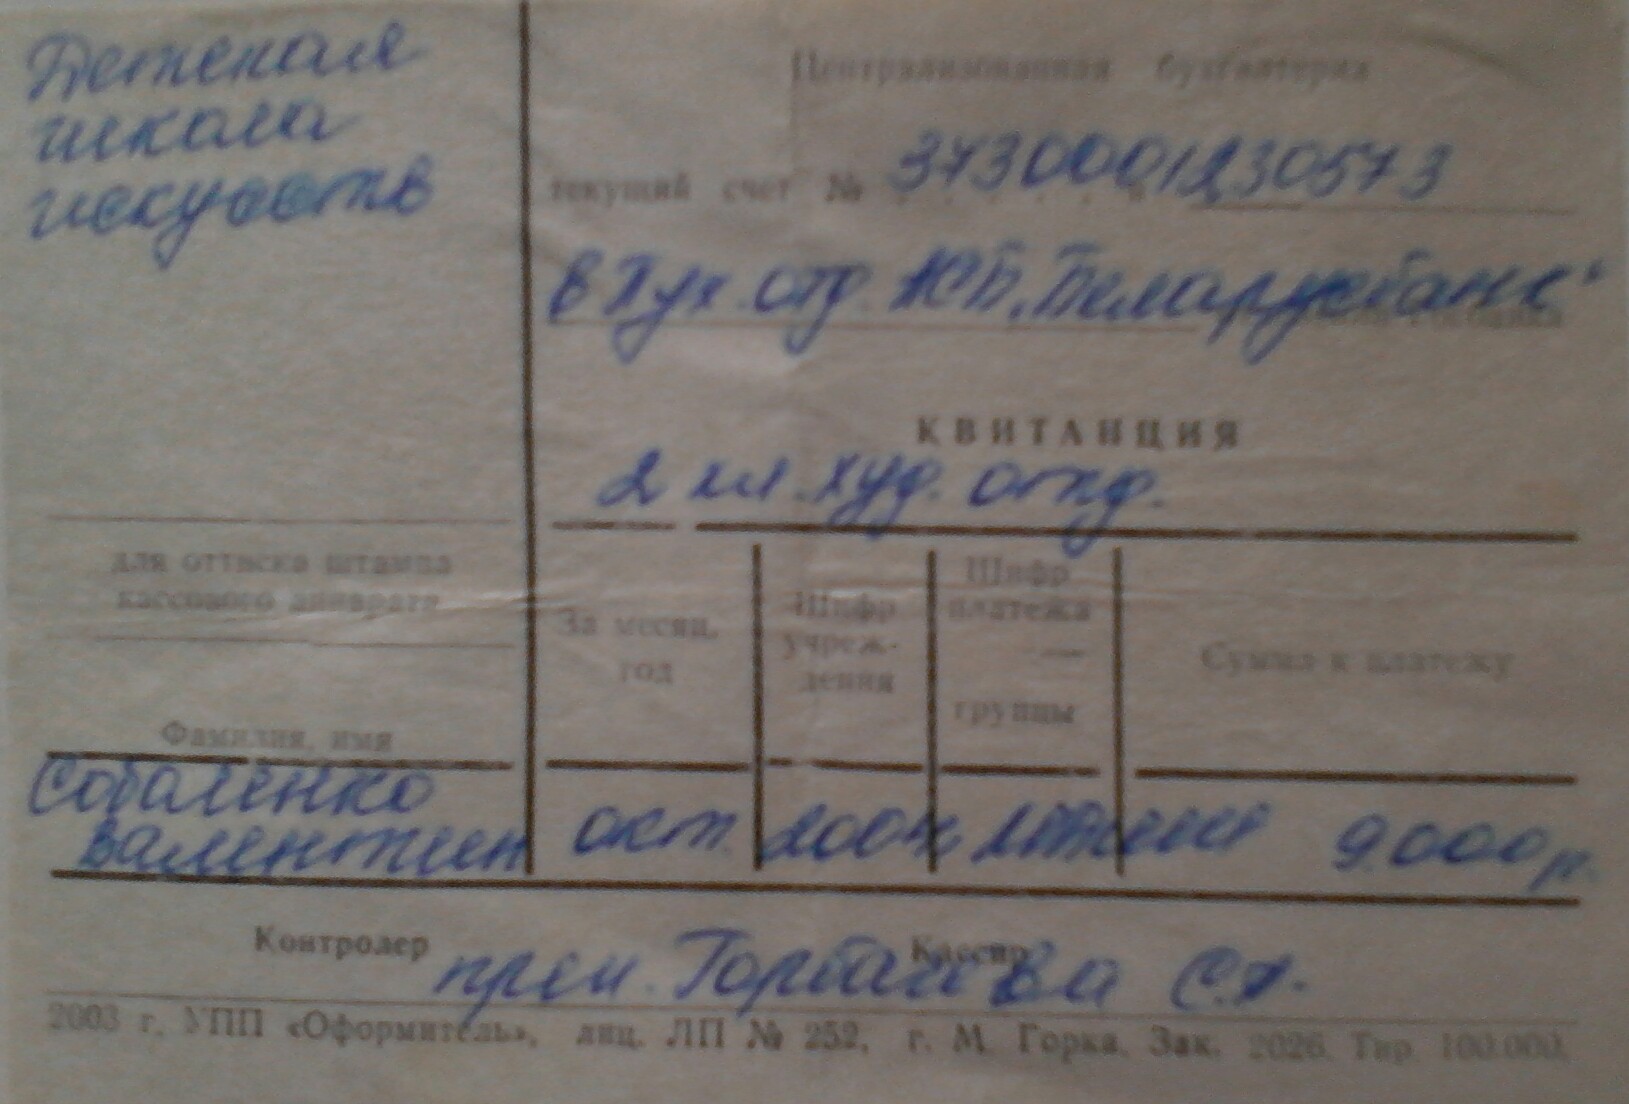 Детская
школа
искусств
Централизованная бухгалтерия
текущий счет № 3730001230573
в Пух. отд. АСБ „Беларусбанк"
Госбанка
КВИТАНЦИЯ
2 кл. худ. отд.
для оттиска штампа
кассового аппарата
Фамилия, имя
За месяц,
год
Шифр
учреж-
дения
Шифр
платежа
—
группы
Сумма к платежу
Соболенко
Валентин окт. 2004 9.000 р.
Контролер Кассир
преп. Горбачева С.А.
2003 г. УПП «Оформитель», лиц. ЛП № 252, г. М. Горка. Зак. 2026. Тир. 100.000.